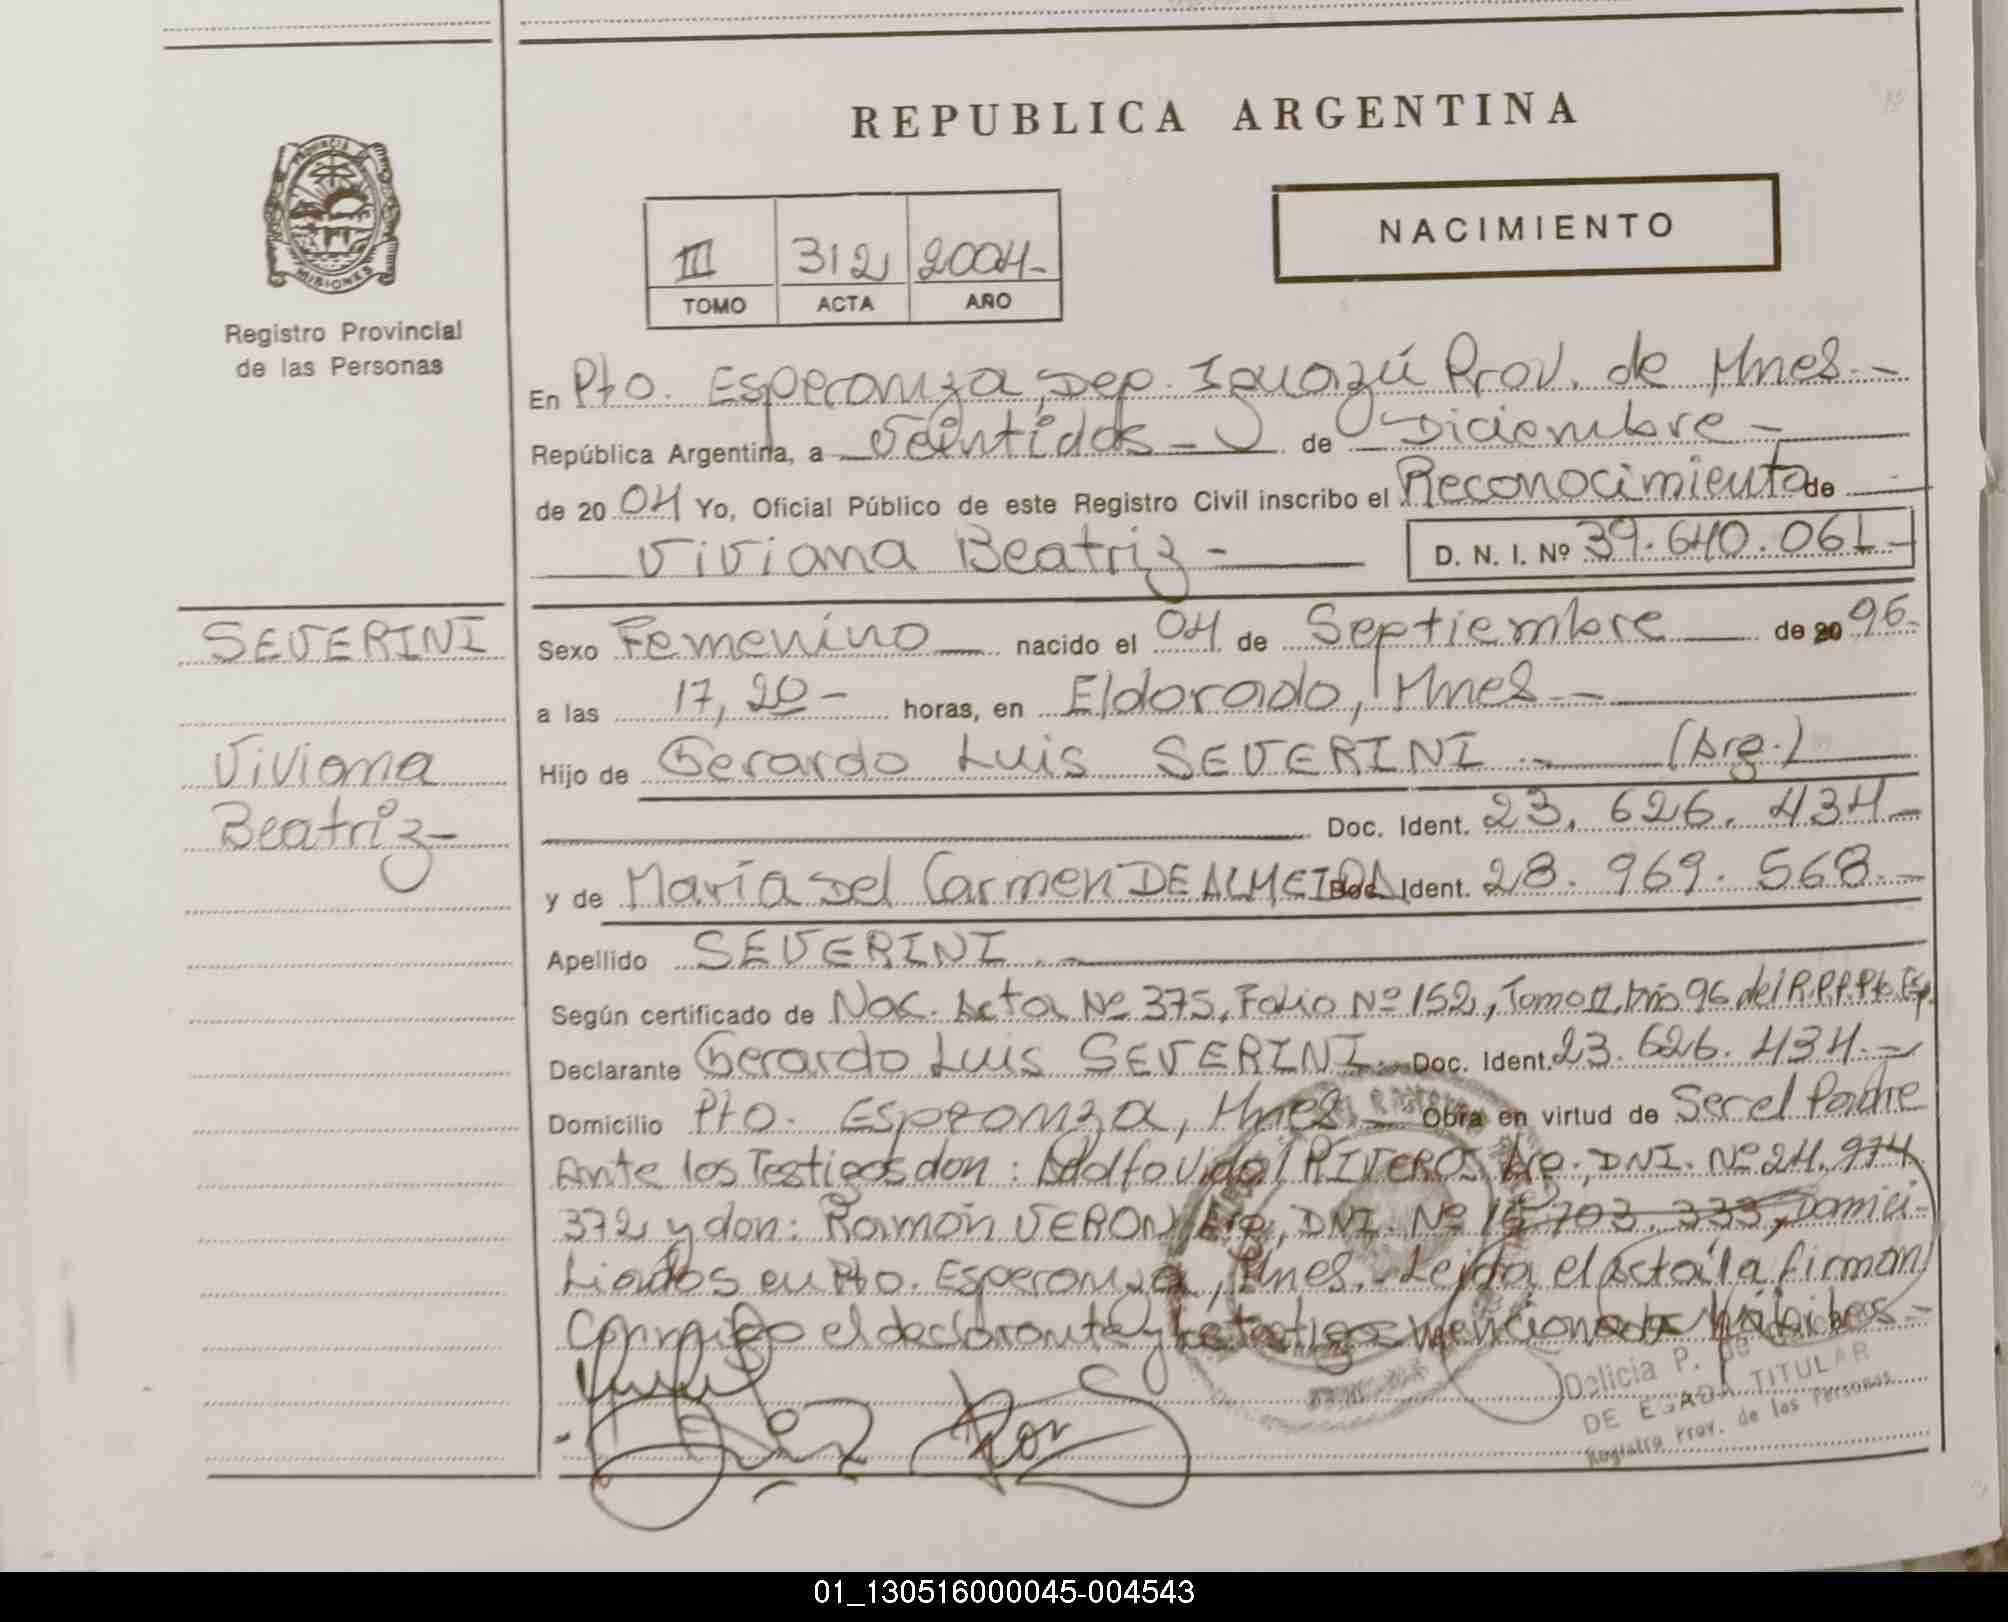 REPUBLICA ARGENTINA
NACIMIENTO
III 312 2004-
TOMO ACTA AÑO
PROVINCIA
MISIONES
Registro Provincial
de las Personas
SEVERINI
Viviana
Beatriz-
En Pto. Esperanza, Dep. Iguazú Prov. de Mnes.-
República Argentina, a Veintidos- de Diciembre-
de 20 04 Yo, Oficial Público de este Registro Civil inscribo el Reconocimiento de
Viviana Beatriz- D. N. I. Nº 39.640.061-
Sexo Femenino nacido el 04 de Septiembre de 20 96-
a las 17,20- horas, en Eldorado, Mnes.-
Hijo de Gerardo Luis SEVERINI.- (Arg.)
Doc. Ident. 23.626.434-
y de María Del Carmen DE ALMEIDA Doc. Ident. 28.969.568.-
Apellido SEVERINI.-
Según certificado de Nac. Acta Nº 375, Folio Nº 152, Tomo II, Año 96 del R.P.P. Pto. Esp.
Declarante Gerardo Luis SEVERINI.- Doc. Ident. 23.626.434.-
Domicilio Pto. Esperanza, Mnes.- Obra en virtud de Ser el Padre
Ante los Testigos don: Adolfo Vidal RIVEROS Arg., DNI. Nº 24.974
372 y don: Ramón VERON Arg., DNI. Nº 703.333, Domici-
liados en Pto. Esperanza, Mnes.- Leida el acta la firman
Conmigo el declarante y los testigos mencionados
Delicia P. de
TITULAR
Registro Prov. de las Personas
01_130516000045-004543